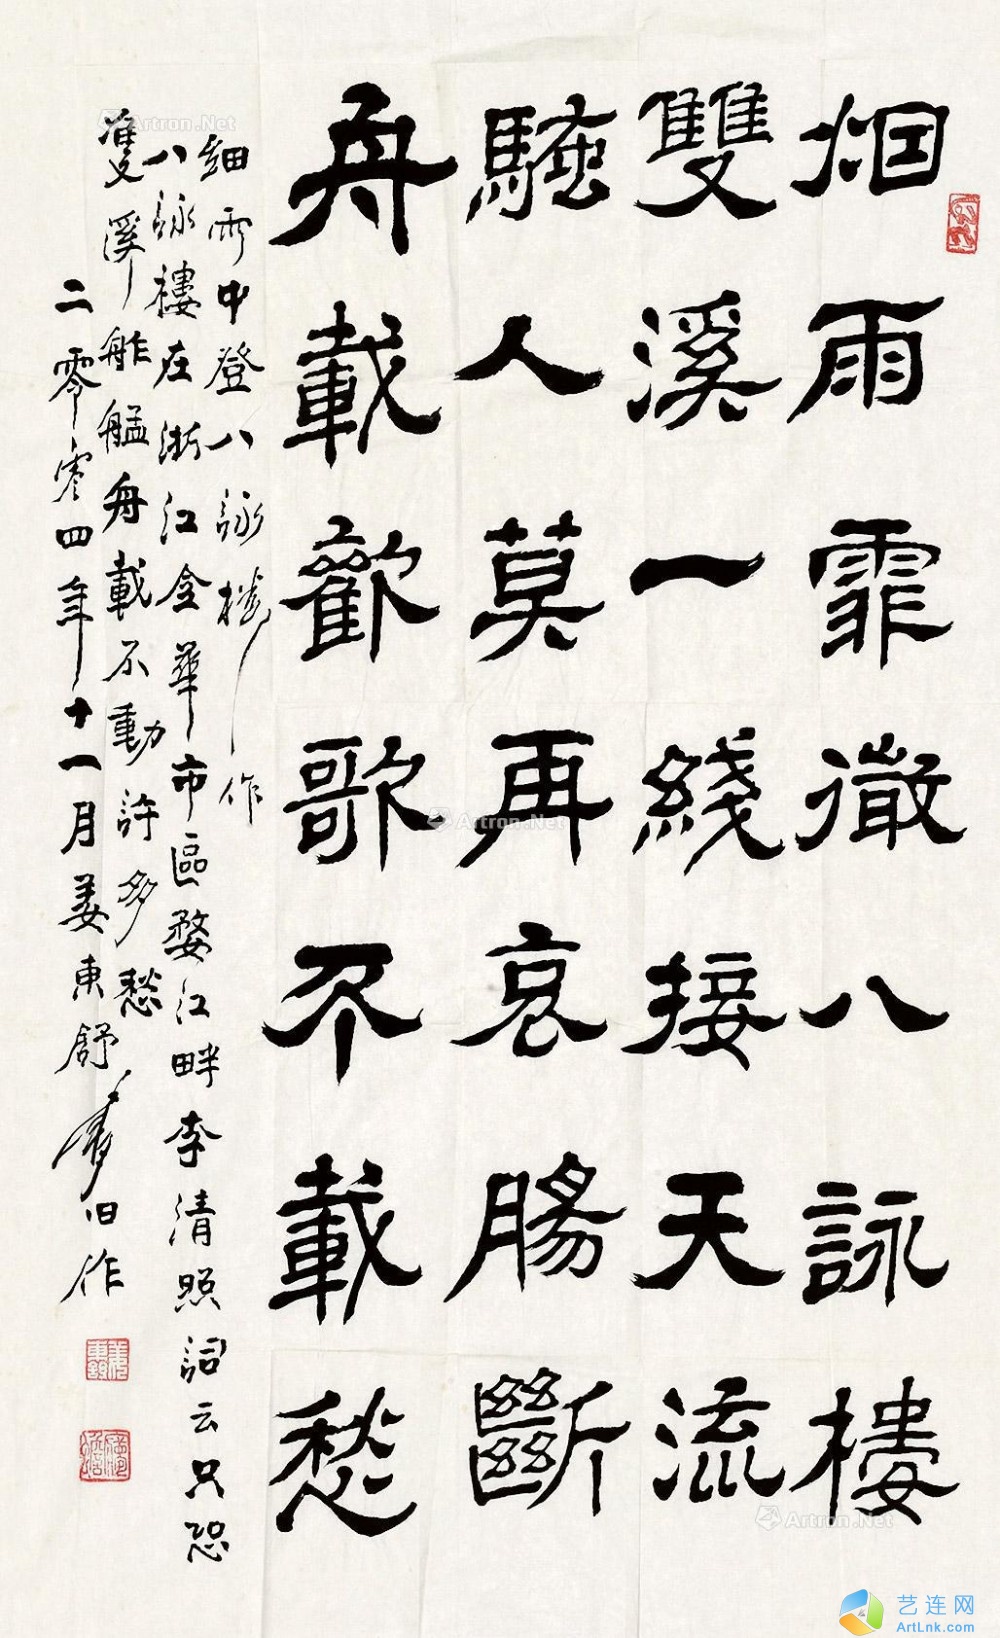 烟雨霏微八詠樓
雙溪一綫接天流
騷人莫再哀腸斷
舟載歡歌不載愁
細雨中登八詠樓作
八詠樓在浙江金華市區婺江畔李清照詞云只恐
雙溪舴艋舟載不動許多愁
二零零四年十一月姜東舒書旧作
Artron.Net
Artron.Net
Artron.Net
艺连网
ArtLnk.com